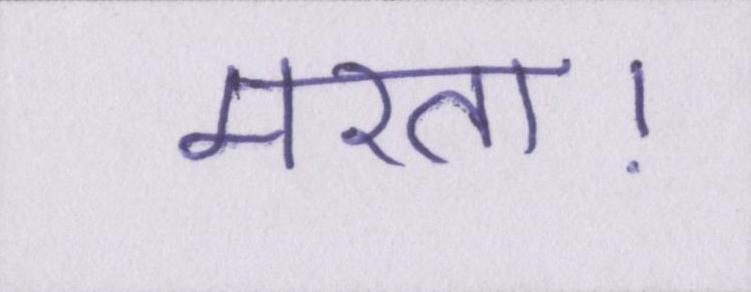 मरता!